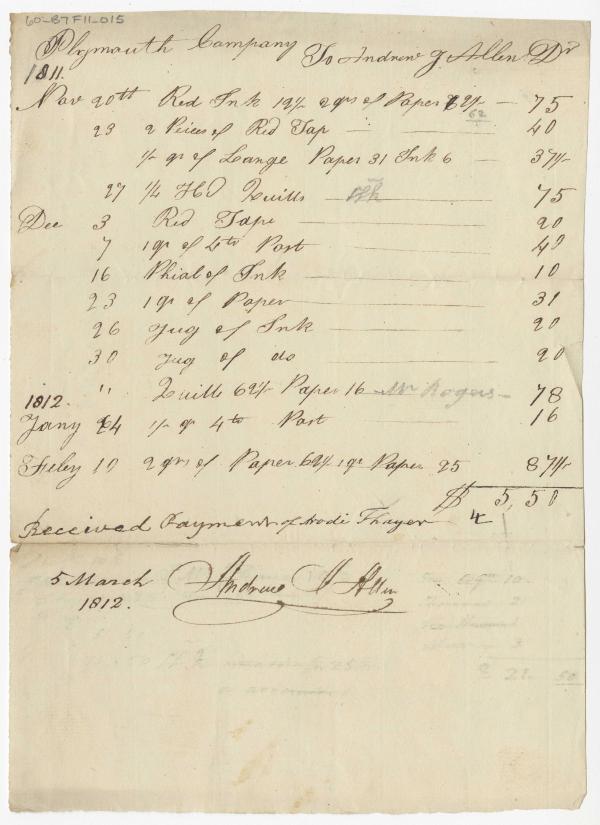 60-B7F11-015
Plymouth Company To Andrew J Allen Dr
1811.
Nov 20th Red Ink 12½ 2 qrs of Paper 62½ — 75
62
23 2 Peices of Red Tap — 40
½ qr of Large Paper 31 Ink 6 — 37½
27 ¼ Hd Quills — 75
Dec 3 Red Tape — 20
7 1 qr of 4to Post — 40
16 Phial of Ink — 10
23 1 qr of Paper — 31
26 Jug of Ink — 20
30 Jug of do — 20
" Quills 62½ Paper 16 — Mr Rogers — 78
1812.
Jany 24 ½ qr 4to Post 16
Feby 10 2 qrs of Paper 62½ 1 qr Paper 25 87½
$ 5,50
Received Payment of Arodi Thayer
5 March Andrew J Allen
1812.